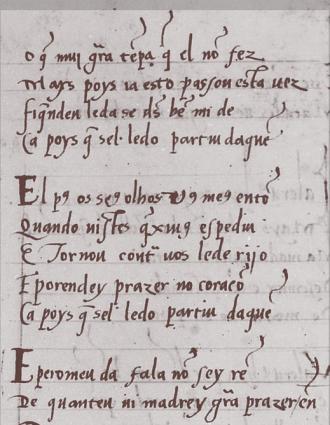 o q̃ mui gr̃a tẽpa q̃ el nõ fez
Mays poys ia esto passou esta uez
fiq̃nden leda se ds̃ bẽ mi de
Ca poys q̃ sel ledo partiu daquẽ
El p9 os se9 olhos u9 me9 entõ
Quando uistes q̃xiu9 espediu
E Tornou contr̃ uos ledo rijo
E porendey prazer no coraçõ
Ca poys q̃ sel ledo partiu daquẽ
E peromeu da fala nõ sey rẽ
De quanteu ui madrey gr̃a prazer en